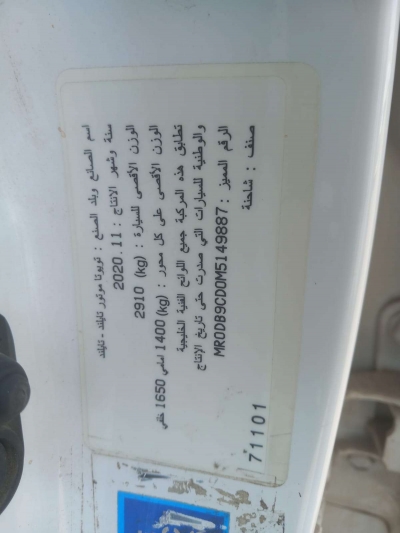 اسم الصانع وبلد الصنع : تويوتا موتور تايلند - تايلند
سنة وشهر الانتاج : 2020.11
الوزن الأقصى للسيارة : 2910 (kg)
الوزن الأقصى على كل محور : 1400 (kg) امامي 1650 خلفي
تطابق هذه المركبة جميع اللوائح الفنية الخليجية
والوطنية للسيارات التي صدرت حتى تاريخ الانتاج
الرقم المميز : MR0DB9CD0M5149887
صنف : شاحنة
71101